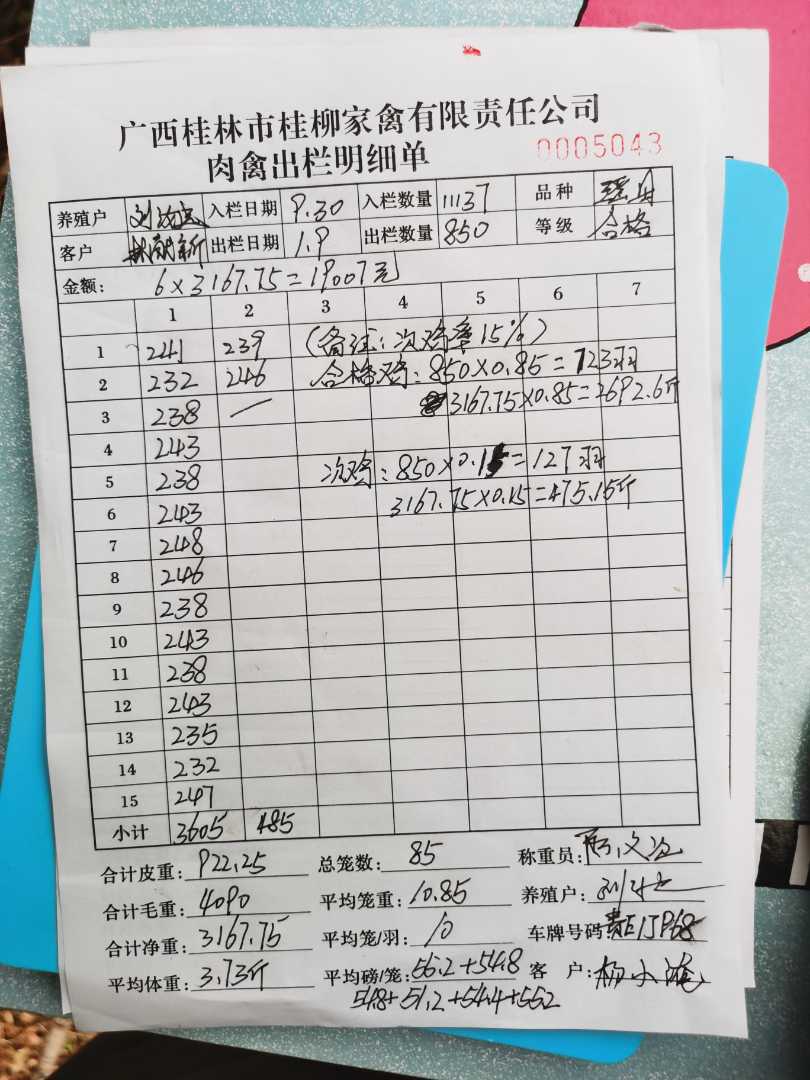 广西桂林市桂柳家禽有限责任公司
肉禽出栏明细单 0005043
养殖户 入栏日期 9.30 入栏数量 11137 品种
客户 出栏日期 1.9 出栏数量 850 等级 合格
金额: 6×3167.75=19007元
1 2 3 4 5 6 7
1 241 239 (备注:次鸡率15%)
2 232 246 合格鸡:850×0.85=723羽
3 238 — 3167.75×0.85=2692.6斤
4 243
5 238 次鸡:850×0.15=127羽
6 243 3167.75×0.15=475.15斤
7 248
8 246
9 238
10 243
11 238
12 243
13 235
14 232
15 247
小计 3605 485
合计皮重: 922.25 总笼数: 85 称重员:
合计毛重: 4090 平均笼重: 10.85 养殖户:
合计净重: 3167.75 平均笼/羽: 10 车牌号码
平均体重: 3.73斤 平均磅/笼: 56.2+54.8 客 户:
54.8+51.2+54.4+55.2